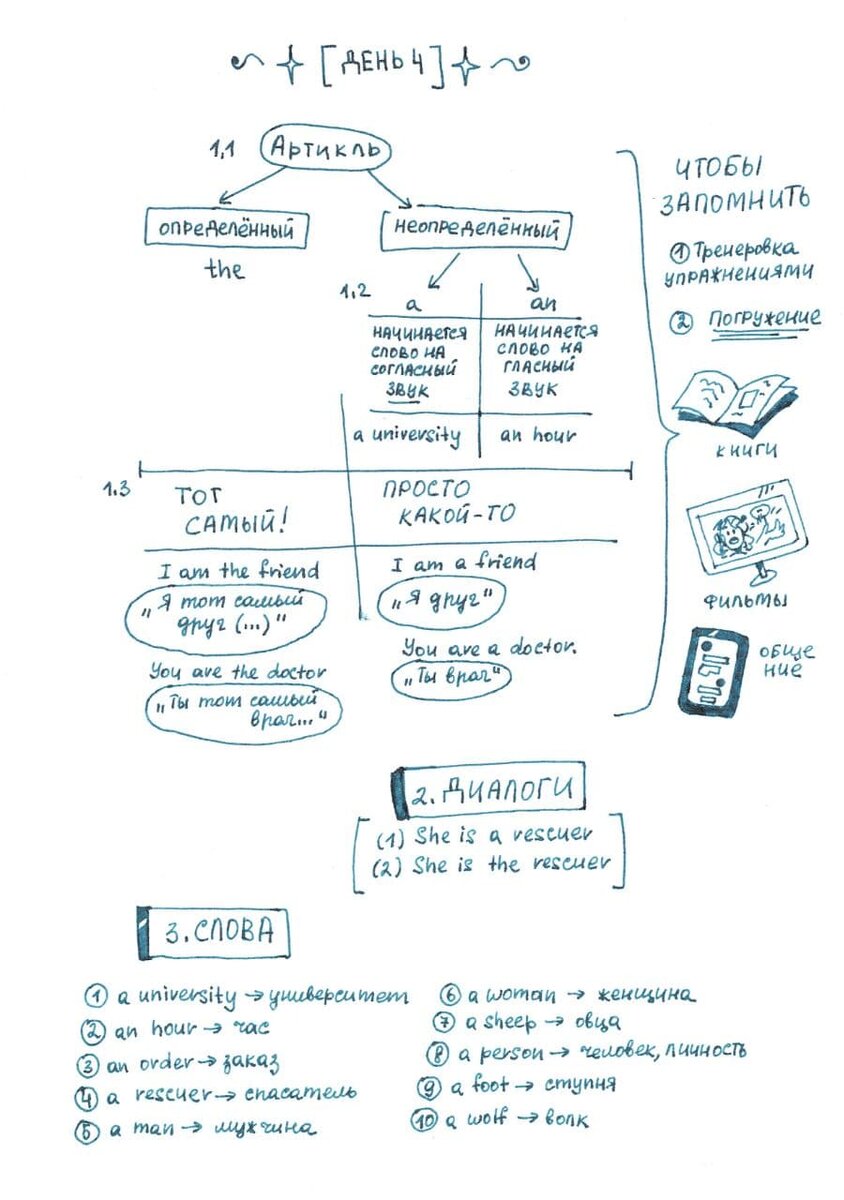 [ДЕНЬ 4]
1,1 Артикль
определённый
the
неопределённый
1,2
a
начинается
слово на
согласный
звук
a university
an
начинается
слово на
гласный
звук
an hour
1.3
ТОТ
САМЫЙ!
I am the friend
„Я тот самый
друг (...)"
You are the doctor
„Ты тот самый
врач..."
ПРОСТО
КАКОЙ-ТО
I am a friend
„Я друг"
You are a doctor.
„Ты врач"
ЧТОБЫ
ЗАПОМНИТЬ
1 Тренеровка
упражнениями
2 Погружение
книги
фильмы
обще
ние
2. ДИАЛОГИ
(1) She is a rescuer
(2) She is the rescuer
3. СЛОВА
1 a university → университет
2 an hour → час
3 an order → заказ
4 a rescuer → спасатель
5 a man → мужчина
6 a woman → женщина
7 a sheep → овца
8 a person → человек, личность
9 a foot → ступня
10 a wolf → волк